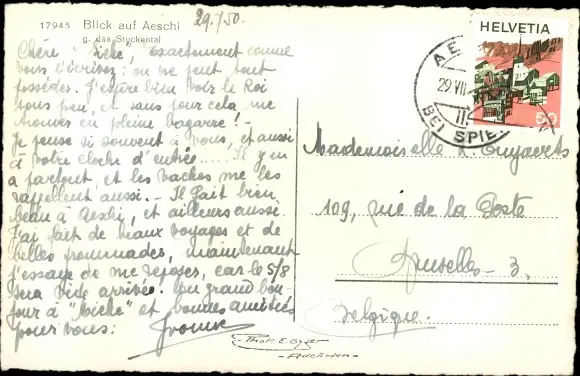 17945 Blick auf Aeschi
g. das Stockental
29.7.50.
Chère "Mieke", Exactement comme
vous l'écrivez: on ne peut tout
posséder. J'espère bien voir le Roi
sous peu, et sans pour cela me
trouver en pleine bagarre! -
Je pense si souvent à vous, et aussi
à votre cloche d'entrée..... Il y en
a partout, et les vaches me les
rappellent aussi. - Il fait bien
beau à Aeschi, et ailleurs aussi.
J'ai fait de beaux voyages et de
belles promenades, maintenant
j'essaye de me reposer, car le 5/8
sera vite arrivé. Un grand bon-
jour à "Mieke" et grandes amitiés
pour vous:
Yvonne
HELVETIA
50
29.VII
BEI SPIE
Mademoiselle
109, rue de la Poste
Bruxelles - 3.
Belgique.
Thor E. Gyger
Adelboden